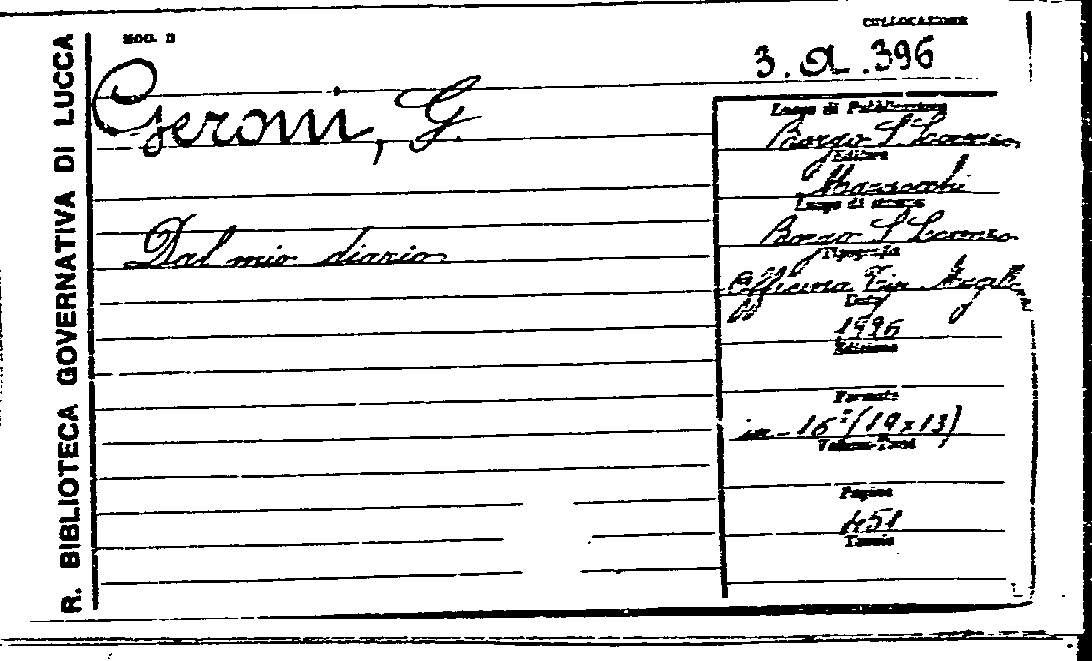 R. BIBLIOTECA GOVERNATIVA DI LUCCA
MOD. B
COLLOCAZIONE
3. a. 396
Geroni, G.
Dal mio diario
Luogo di Pubblicazione
Borgo S Lorenzo
Editore
Mazzocchi
Luogo di stampa
Borgo S Lorenzo
Tipografia
Officina Tip
Data
Edizione
Formato
in-16° (19x13)
Volumi-Tomi
Pagine
451
Tavole